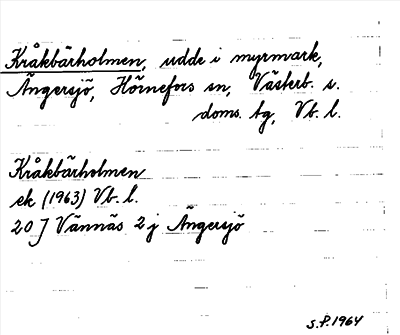 Kråkbärholmen, udde i myrmark,
Ängersjö, Hörnefors sn, Västerb. s.
doms. tg, Vb. l.
Kråkbärholmen
ek (1963) Vb. l.
20 J Vännäs 2 j Ängersjö
S.P. 1964